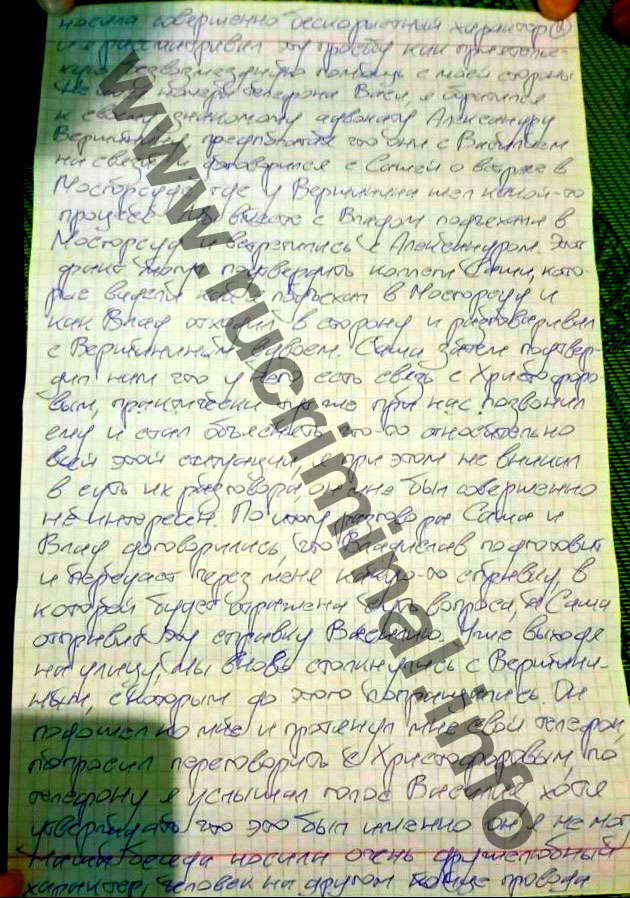 носила совершенно бескорыстный характер
и я рассматривал эту просьбу как приятельс-
кую безвозмездную помощь с моей стороны
Не имея номера телефона Васи, я обратился
к своему знакомому адвокату Александру
Вершинину предполагая что они с Василием
на связи и договорился с Сашей о встрече в
Мосгорсуде, где у Вершинина шел какой-то
процесс. Мы вместе с Владом подъехали в
Мосгорсуд и встретились с Александром. Этот
факт могут подтвердить коллеги Саши, кото-
рые видели как я подъехал в Мосгорсуд и
как Влад отходил в сторону и разговаривал
с Вершининым вдвоем. Саша затем подтвер-
дил нам что у него есть связь с Христофоро-
вым, практически тут же при нас позвонил
ему и стал объяснять что-то относительно
всей этой ситуации, я при этом не вникал
в суть их разговора он мне был совершенно
не интересен. По итогу разговора Саша и
Влад договорились, что Владислав подготовит
и передаст через меня какую-то справку, в
которой будет отражена суть вопроса, а Саша
отправит эту справку Василию. Уже выходя
на улицу, мы вновь столкнулись с Вершини-
ным, с которым до этого попрощались. Он
подошел ко мне и протянул мне свой телефон,
попросил переговорить с Христофоровым, по
телефону я услышал голос Василия хотя
утверждать что это был именно он я не мог
Наша беседа носила очень дружелюбный
характер, человек на другом конце провода
www.rucriminal.info